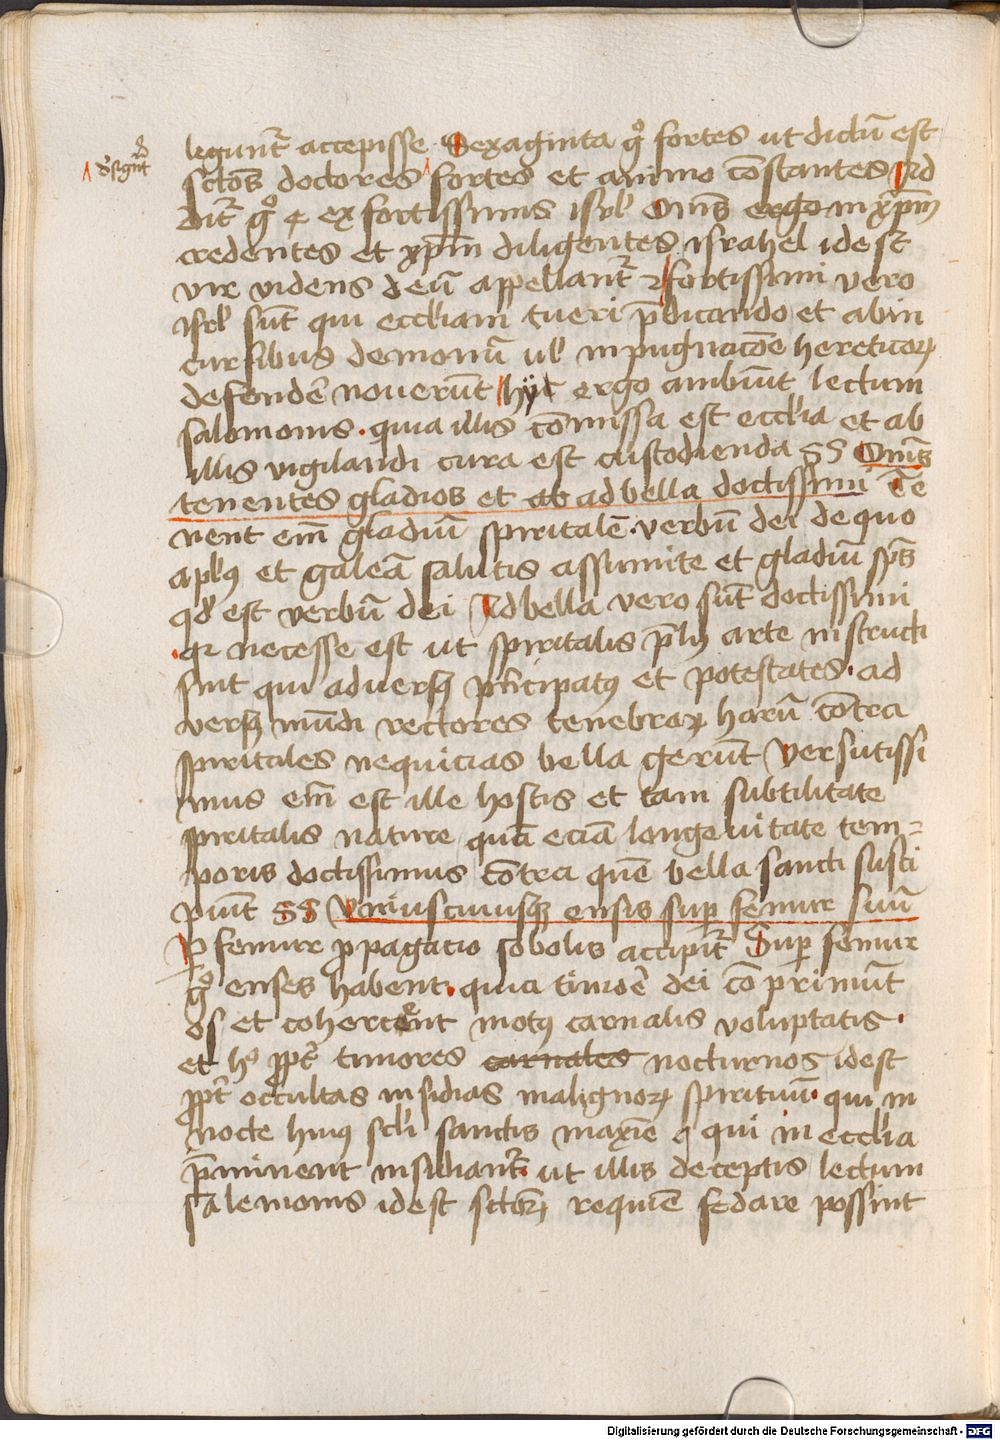 legunt᷑ accepisse Sexaginta gͦ fortes ut dictū est
sctōs doctores fortes et animo cōstantes Ad
dit᷑ gͦ ⁊ ex fortissimis isrl̕ Om̄s ergo in xp̄m
credentes et xp̄m diligentes israhel idest
vir videns deū appellant᷑ fortissimi vero
isrl̕ sūt qui eccl̕iam tueri p̄dicando et ab in
cursibus demonū ul̕ inpugnacōe hereticoꝝ
defendē noverūt hÿ ergo ambiūt lectum
salomonis · quia illis cōmissa est eccl̕ia et ab
illis vigilandi cura est custodienda SS Om̄s
tenentes gladios et ab ad bella doctissimi Te
nent em̄ gladiū spiritalē · verbū dei de quo
apl̕us et galeā salutis assumite et gladiū sp̄s
qd̕ est verbū dei Ad bella vero sūt doctissimi
· qꝛ necesse est ut spiritalis p̄lij arte instructi
sint qui adversꝫ p̄ncipatꝰ et potestates · ad
versꝫ mūdi rectores tenebraꝝ harū cōtra
spiritales nequicias bella gerūt Versutissi
mus em̄ est ille hostis et tam subtilitate
spiritalis nature quā eciā longevitate tem=
poris doctissimus cōtra quē bella sancti susci
piūt SS Uniuscuiusqꝫ ensis suꝑ femur suū
P femur ꝓpagatio sobolis accipit᷑ Suꝑ femur
gͦ enses habent · quia timoē dei cōprimūt
os et cohercēnt motꝰ carnalis voluptatis ·
et hͦ ꝓpt᷑ timores carnales nocturnos idest
ꝓpt᷑ occultas insidias malignoꝝ spirituū · qui in
nocte huiꝰ scl̕i sanctis maxīe q qui in eccl̕ia
p̄minent insidiant᷑ · ut illis deceptis lectum
salemonis idest sctōꝝ requiē fedare possint
Digitalisierung gefördert durch die Deutsche Forschungsgemeinschaft - DFG